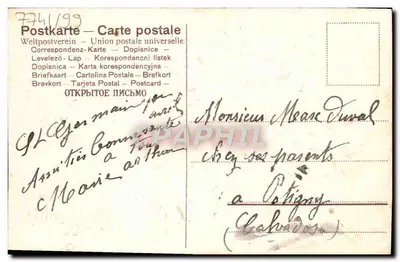 7741/99
Postkarte — Carte postale
Weltpostverein — Union postale universelle
Correspondenz-Karte — Dopisnice
Levelező-Lap — Korespondenční lístek
Dopisnica — Karta korespondencyjna
Briefkaart — Cartolina Postale — Brefkort
Brevkort — Tarjeta Postal — Postcard
ОТКРЫТОЕ ПИСЬМО
St Germain
avril
Amitiés
à tous
Marie
Monsieur Marc Duval
chez ses parents
à Potigny
(Calvados)
PAPHIL